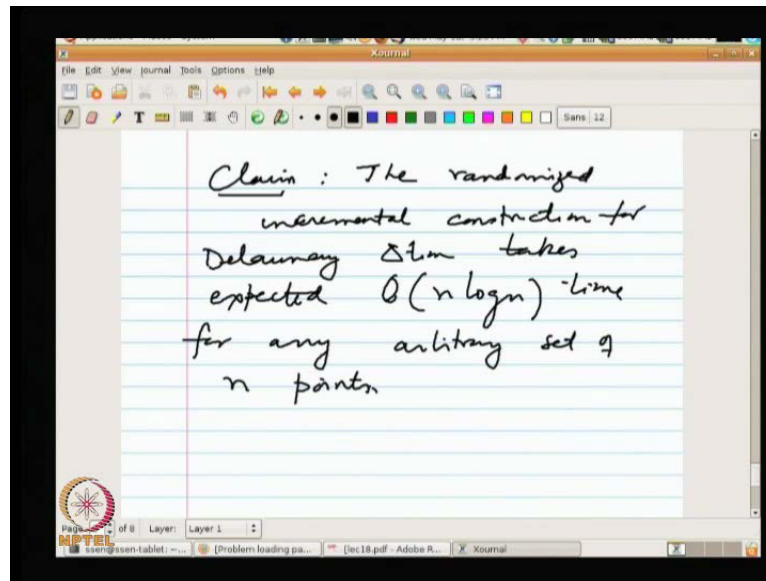 Xournal
File Edit View Journal Tools Options Help
Sans 12
Claim : The randomized
incremental construction for
Delaunay Δtion takes
expected O(n logn) -time
for any arbitrary set of
n points
Page of 8 Layer: Layer 1
NPTEL
ssen@ssen-tablet: ~... [Problem loading pa... [lec18.pdf - Adobe R... Xournal